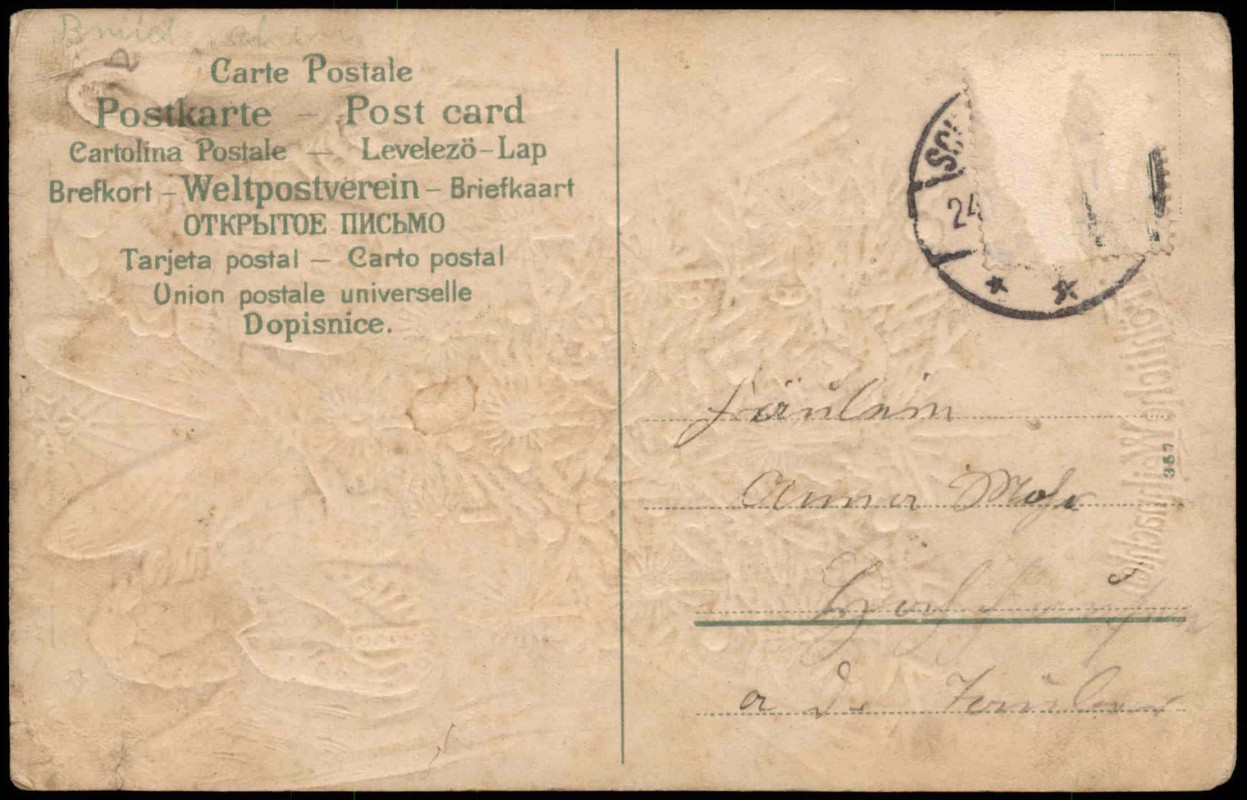 Carte Postale
Postkarte – Post card
Cartolina Postale – Levelezö-Lap
Brefkort – Weltpostverein – Briefkaart
ОТКРЫТОЕ ПИСЬМО
Tarjeta postal – Carto postal
Union postale universelle
Dopisnice.
24
Fräulein
Anna Mohr
a d.
357